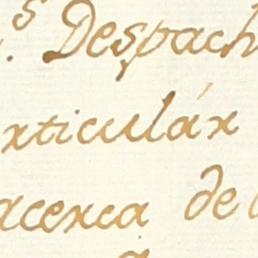 s. Despach
rticulár
acerca de